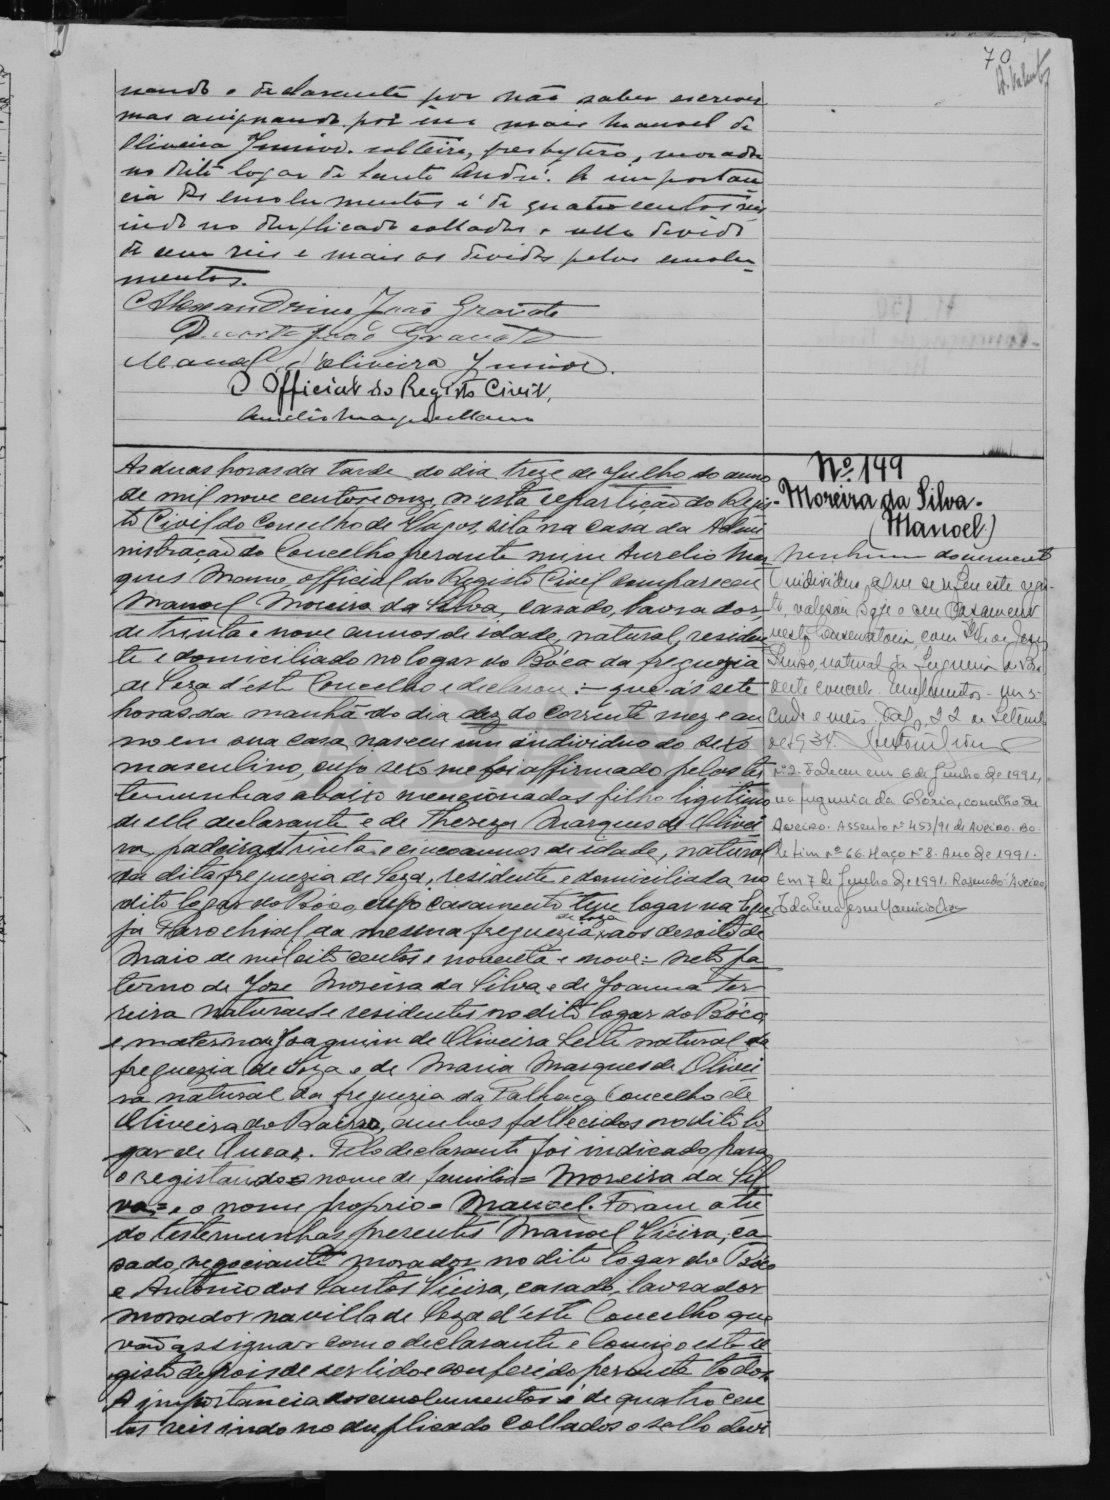 70
nando o declarante por não saber escrever
mas assignando por im mais Manoel de
Oliveira Junior, solteiro, presbytero, morador
no dito logar de Santo André. A importan
cia dos emolumentos é de quatro centos reis
indo no duplicado collados o sello devido
de cem reis e mais os devidos pelos emolu-
mentos.
Alexandrino João Graivoto
Duarte João Gravato
Manoel d'Oliveira Junior.
O Official do Registo Civil,
Aurelio Marques Mano
As duas horas da tarde do dia treze de Julho do anno
de mil nove centos e onze, n'esta repartição do Regis-
to Civil do Concelho de Vagos, sita na casa da Admi
nistração do Concelho perante mim Aurelio Mar
ques Mano, official do Registo Civil compareceu
Manoel Moreira da Silva, casado, lavrador,
de trinta e nove annos de idade, natural, residen
te e domiciliado no logar do Bôco da freguezia
de Soza d'este Concelho e declarou :- que ás sete
horas da manhã do dia dez do corrente mez e an
no em sua casa, nasceu um individuo do sexo
masculino, cujo sexo me foi affirmado pelas tes
temunhas abaixo mencionadas filho ligitimo
de elle declarante e de Thereza Marques de Olivei
ra, padeira, trinta e cinco annos de idade, natural
da dita freguezia de Soza, residente e domiciliada no
dito logar do Bôco, cujo casamento teve logar na Egre
ja Parochial da mesma freguezia de Soza aos desoito de
Maio de mil oito centos e noventa e nove:- neto pa
terno de Jose Moreira da Silva e de Joanna Fer
reira naturaes e residentes no dito logar do Bôco
e materno de Joaquim de Oliveira Leite natural da
freguezia de Soza e de Maria Marques de Olivei
ra natural da freguezia da Palhaça Concelho de
Oliveira do Bairro, ambos fallecidos no dito lo
gar de Ouca. Pelo declarante foi indicado para
o registando o nome de familia = Moreira da Sil
va = e o nome proprio = Manoel. Foram a tu
do testemunhas presentes Manoel Vieira, ca
sado, negociante morador no dito logar do Bôco
e Antonio dos Santos Vieira, casado, lavrador
morador na villa de Soza d'este Concelho que
vão assignar com o declarante e comigo este re
gisto depois de ser lido e conferido perante todos.
A importancia dos emolumentos é de quatro cen
tos reis indo no duplicado collados o sello devi
Nº 149
- Moreira da Silva -
(Manoel)
Nenhum documento
O individuo, a que se refere este regis-
to, valeson hoje o seu casamento
nesta Conservatoria, com
natural da freguesia de
deste concelho. Emolumentos -
cudo e meio. Vagos, 22 de Setemb.
de 1934.
Nº 2. Faleceu em 6 de Junho de 1991,
na freguesia da Gloria, concelho de
Aveiro. Assento Nº 453/91 de Aveiro. Bo-
letim nº 66. Maço Nº 8. Ano de 1991.
Em 7 de Junho de 1991.